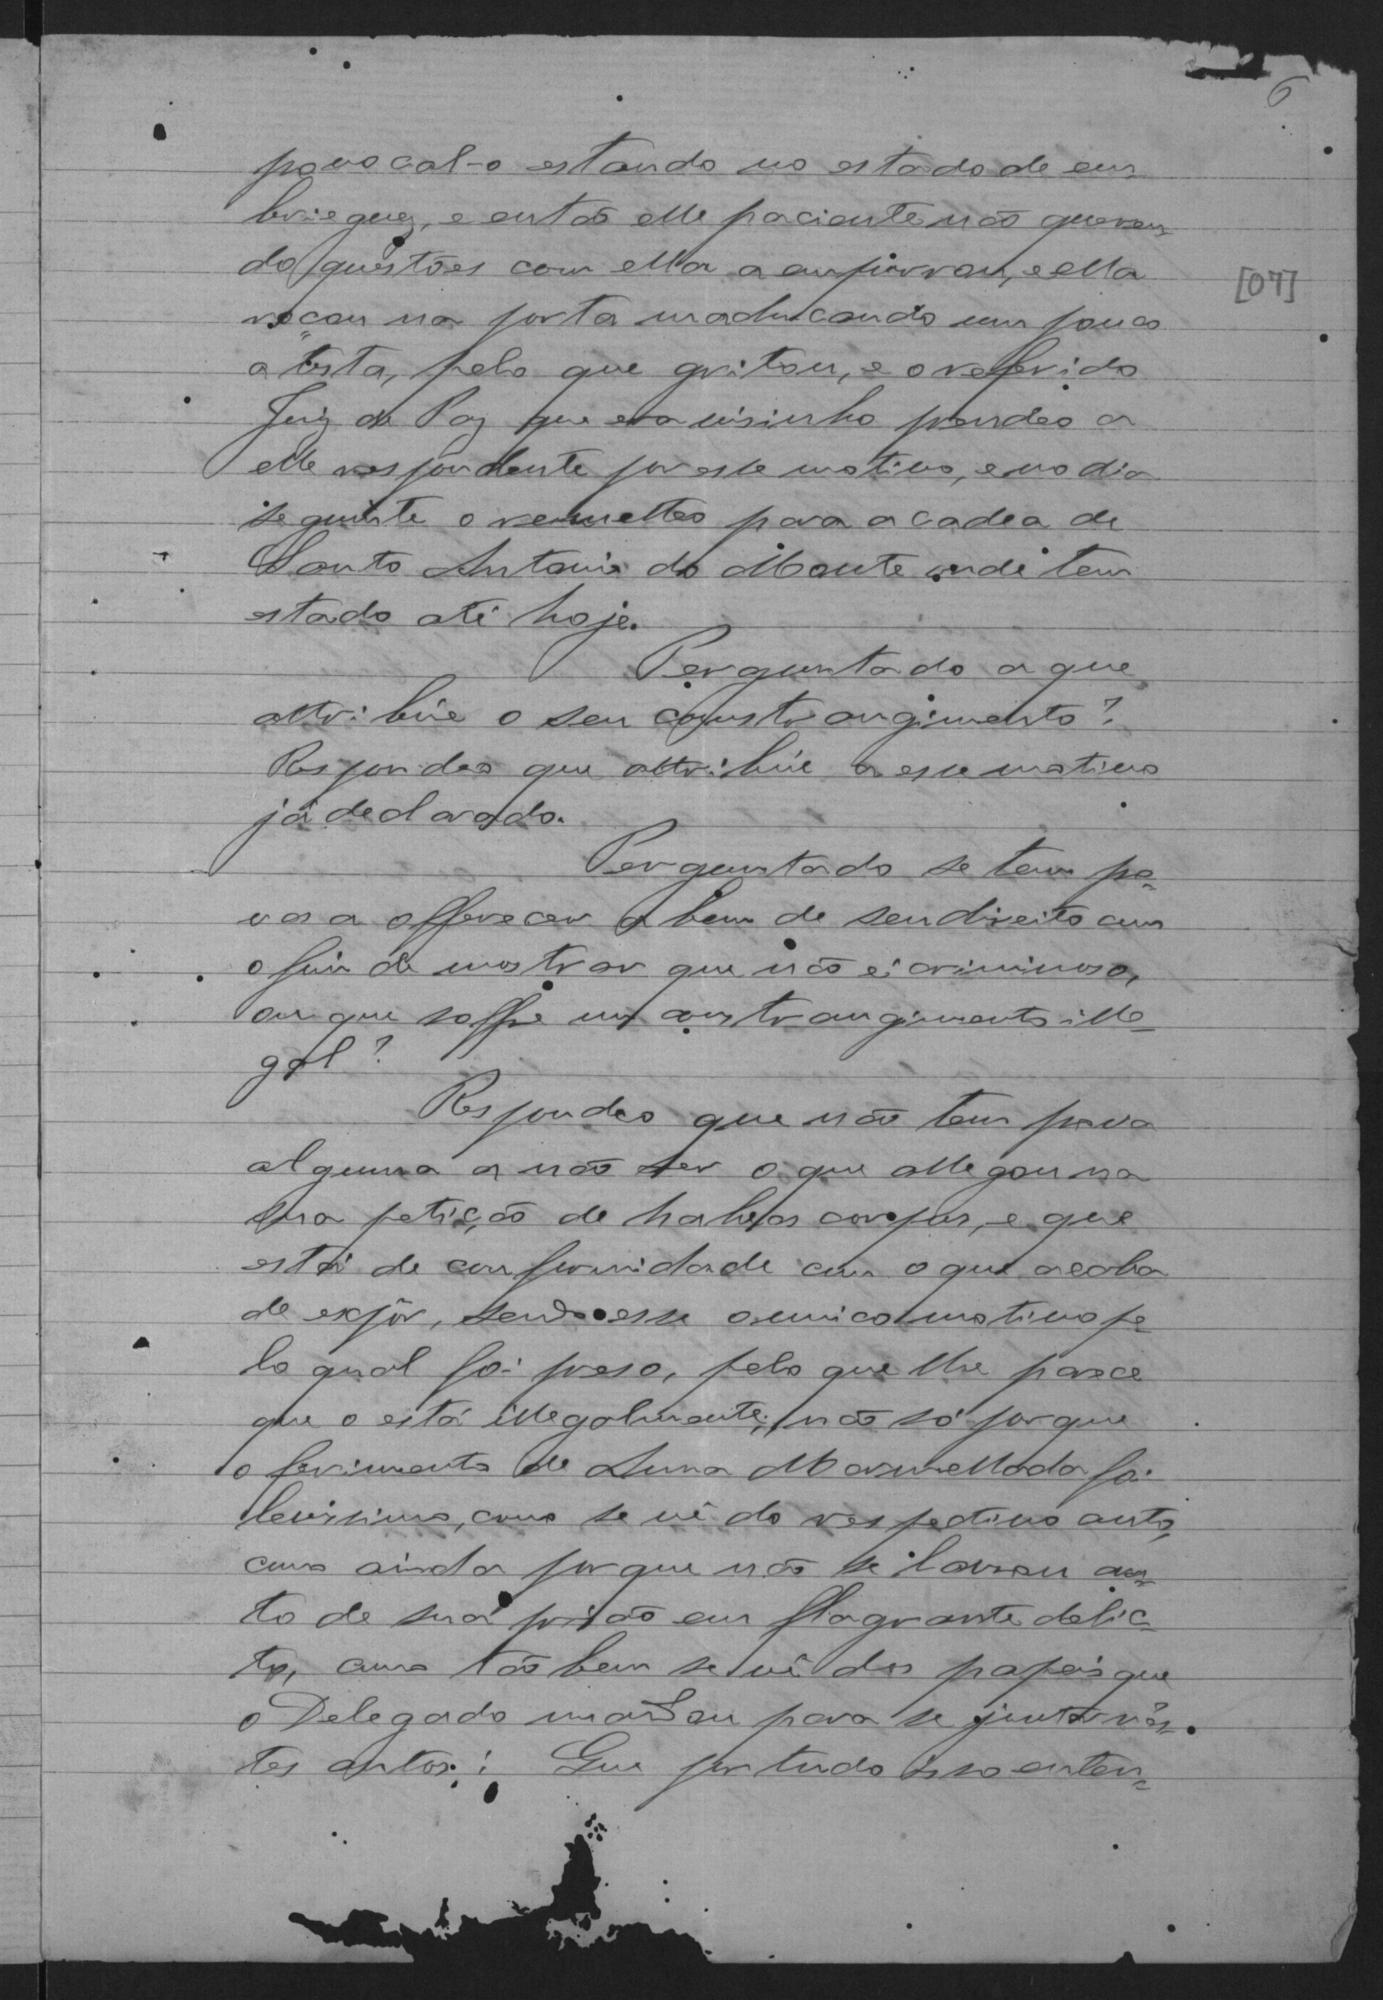 6
provocal-o estando no estado de em
briaguez, e então elle paciente não queren
do questões com ella a empurrou, e ella
rocou na porta maducando um pouco
a testa, pelo que gritou, e o referido
Juiz de Paz que era visinho prendeo a
elle respondente por esse motivo, e no dia
seguinte o remetteo para a cadea de
Santo Antonio do Monte onde tem
estado até hoje.
[07]
Perguntado a que
attribúe o seu constrangimento?
Respondeo que attribúe a esse motivo
já declarado.
Perguntado se tem pro-
vas a offerecer a bem de seu direito com
o fim de mostrar que não é criminoso,
ou que soffre um constrangimento ille-
gal?
Respondeo que não tem prova
alguma a não ser o que allegou na
sua petição de habeas corpus, e que
está de conformidade com o que acaba
de expôr, sendo esse o unico motivo pe
lo qual foi preso, pelo que lhe parece
que o está illegalmente, não só porque
o ferimento de Anna Marmellada foi
levissimo, como se vê do respectivo auto,
como ainda porque não se lavrou au-
to de sua prisão em flagrante delic-
to, como tão bem se vê dos papeis que
o Delegado mandou para se juntar nês-
tes autos; Que por tudo isso enten-